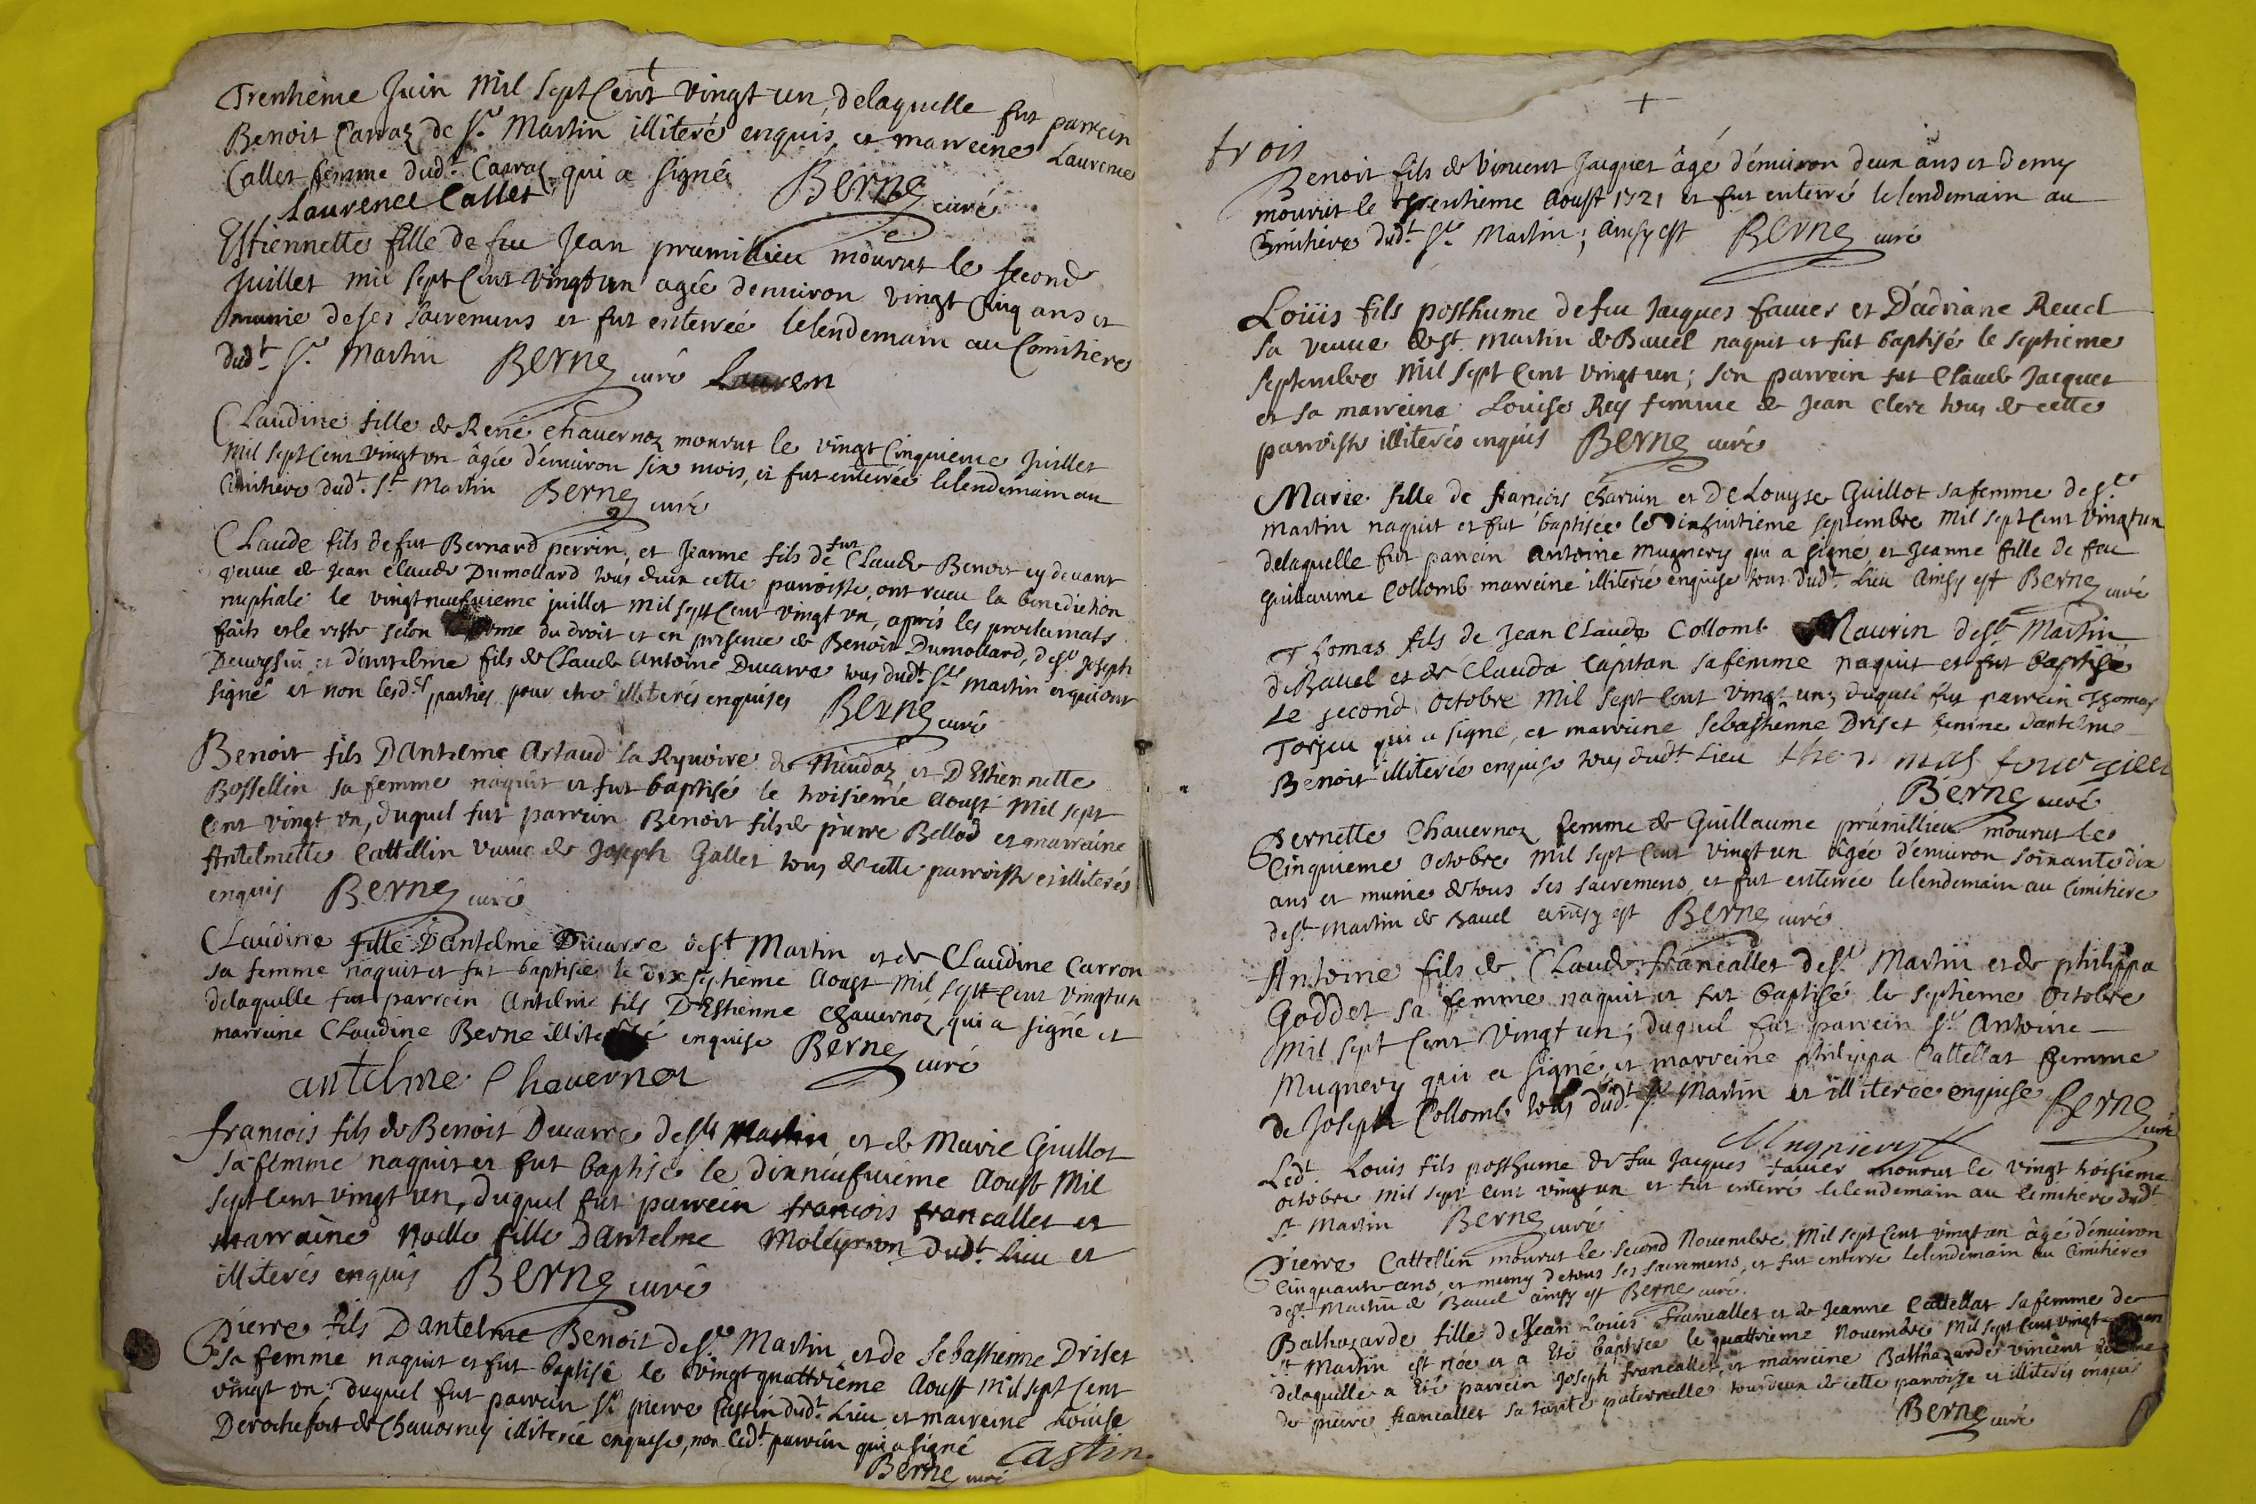 Trentieme Juin mil sept Cent vingt un, delaquelle fut parrein
Benoit Carraz de St. Martin illiteré enquis, et marreine Laurence
Callet femme dud.t Carraz qui a signé Berne curé
Laurence Callet
Estiennette fille de feu Jean prumillieu mourut le second
Juillet mil sept Cent vingt un agée denuiron vingt Cinq ans et
munie de ses sacremens et fut enterrée lelendemain au Cimitiere
dud.t St. Martin Berne curé
Claudine fille de René chauernoz mourut le vingt Cinquieme Juillet
mil sept Cent vingt vn âgée d'enuiron six mois, et fut enterrée lelendemain au
Cimitiere dud.t St. Martin Berne curé
Claude fils de fut Bernard perrin, et Jeanne fils de fut Claude Benoit cy deuant
veuue de Jean Claude Dumollard tous deux cette parroisse, ont receu la benediction
nuptiale le vingt neufuieme juillet mil sept Cent vingt vn, après les proclamats
faits et le reste selon la forme du droit et en presence de Benoit Dumollard, de sr. Joseph
et d'antelme fils de Claude Antoine Ducarre tous dud.t St. Martin et qui ont
signé et non lesd.es parties pour etre illiterés enquises Berne curé
Benoit fils D'Antelme Artaud la de et D'Estiennette
Bossellin sa femme naquit et fut baptisé le troisieme Aoust mil sept
Cent vingt vn, duquel fut parrein Benoit fils de pierre Bellod et marreine
Antelmette Cattellin veuue de Joseph Gallet tous de cette parroisse et illiterés
enquis Berne curé
Claudine fille D'antelme Ducarre de St Martin et de Claudine Carron
sa femme naquit et fut baptisée le dix septieme Aoust mil sept Cent vingt un
delaquelle fut parrein Antelme fils D'Estienne chauernoz qui a signé et
marreine Claudine Berne illiterée enquise Berne curé
antelme Chauernoz
francois fils de Benoit Ducarre de St Martin et de Marie Guillot
sa femme naquit et fut baptisé le dixneufuieme Aoust Mil
sept Cent vingt un, duquel fut parrein francois francallet et
marraine Noelle fille D'Antelme Moleyron dud.t Lieu et
illiterés enquis Berne curé
Pierre fils D'antelme Benoit de St. Martin et de Sebastienne Driset
sa femme naquit et fut baptisé le vingt quattrieme Aoust mil sept Cent
vingt vn. duquel fut parrein sr. pierre Castin dud.t Lieu et marreine Louise
Derochefort de Chauornay illiterée enquise, non led.t parrein qui a signé
Berne curé Castin
trois
Benoit fils de Vincent Jacquet âgé d'enuiron deux ans et demy
mourut le trentieme Aoust 1721 et fut enterré lelendemain au
Cimitiere dud.t St. Martin; Ainsy est Berne curé
Loüis fils posthume de feu Jacques fauier et D'adriane Reuel
sa veuue de St. Martin de Bauel naquit et fut baptisé le septieme
septembre Mil sept Cent vingt un; son parrein fut Claude Jacquet
et sa marreine Louise Rey femme de Jean Clerc tous de cette
parroisse illiterés enquis Berne curé
Marie fille de francois charuin et de Louyse Guillot sa femme de St.
Martin naquit et fut baptisée le dixhuitieme septembre mil sept Cent vingt un
delaquelle fut parrein Antoine Mugnery qui a signé et Jeanne fille de feu
Guillaume Collomb marreine illiterée enquise tous dud.t Lieu Ainsy est Berne curé
Thomas fils de Jean Claude Collomb Maurin de St. Martin
de Bauel et de Claude Capitan sa femme naquit et fut baptisé
Le second octobre mil sept Cent vingt un, duquel fut parrein Thomas
Torjeu qui a signé, et marreine Sebastienne Driset femme dantelme
Benoit illiterée enquise tous dud.t Lieu
Berne curé
Pernette Chauernoz femme de Guillaume prumillieu mourut le
Cinquieme octobre mil sept Cent vingt un âgée d'enuiron soixante dix
ans et munie de tous ses sacremens, et fut enterrée lelendemain au Cimitiere
de St. Martin de Bauel ainsy est Berne curé
Antoine fils de Claude francallet de St. Martin et de philippa
Goddet sa femme naquit et fut baptisé le septieme octobre
Mil sept Cent vingt un; duquel fut parrein sr. Antoine
Mugnery qui a signé et marreine philippa Cattellat femme
de Joseph Collomb tous dud.t St. Martin et illiterée enquise Berne curé
Mugniery
Led.t Louis fils posthume de feu Jacques fauier mourut le vingt troisieme
octobre mil sept Cent vingt un et fut enterré lelendemain au Cimitiere dud.t
St. Martin Berne curé
Pierre Cattellin mourut le second Nouembre Mil sept Cent vingt un âgé d'enuiron
Cinquante ans, et muny de tous ses sacremens, et fut enterré lelendemain au Cimitiere
de St. Martin de Bauel ainsy est Berne curé.
Balthazarde fille de Jean Louis francallet et de Jeanne Cattellat sa femme de
St. Martin est née et a été baptisée le quattrieme Nouembre mil sept Cent vingt un
delaquelle a été parrein Joseph francallet, et marreine Balthazarde vincent femme
de pierre francallet sa tante paternelle, tous deux de cette parroisse et illiterés enquis
Berne curé